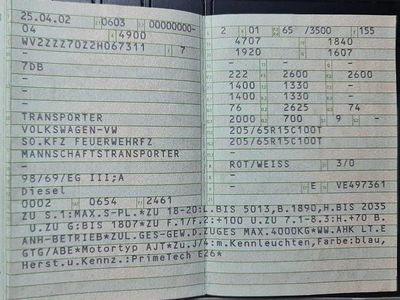 25.04.02 0603 00000000-
04 4900
WV2ZZZ70Z2H067311 7
-
7DB
-
-
-
TRANSPORTER
VOLKSWAGEN-VW
SO.KFZ FEUERWEHRFZ
MANNSCHAFTSTRANSPORTER
-
98/69/EG III;A
Diesel
0002 0654 2461
2 01 65 /3500 155
4707 1840
1920 1607
- - -
222 2600 2600
1400 1330 -
1400 1330 -
76 2625 74
2000 700 9 -
205/65R15C100T
205/65R15C100T
-
ROT/WEISS 3/0
- E VE497361
ZU S.1:MAX.S-PL.*ZU 18-20:L.BIS 5013,B.1890,H.BIS 2035
U.ZU G:BIS 1807*ZU F.1/F.2:+100 U.ZU 7.1-8.3:H.+70 B.
ANH-BETRIEB*ZUL.GES-GEW.D.ZUGES MAX.4000KG*WW.AHK LT.E
GTG/ABE*Motortyp AJT*Zu.J/4:m.Kennleuchten,Farbe:blau,
Herst.u.Kennz.:PrimeTech E26*